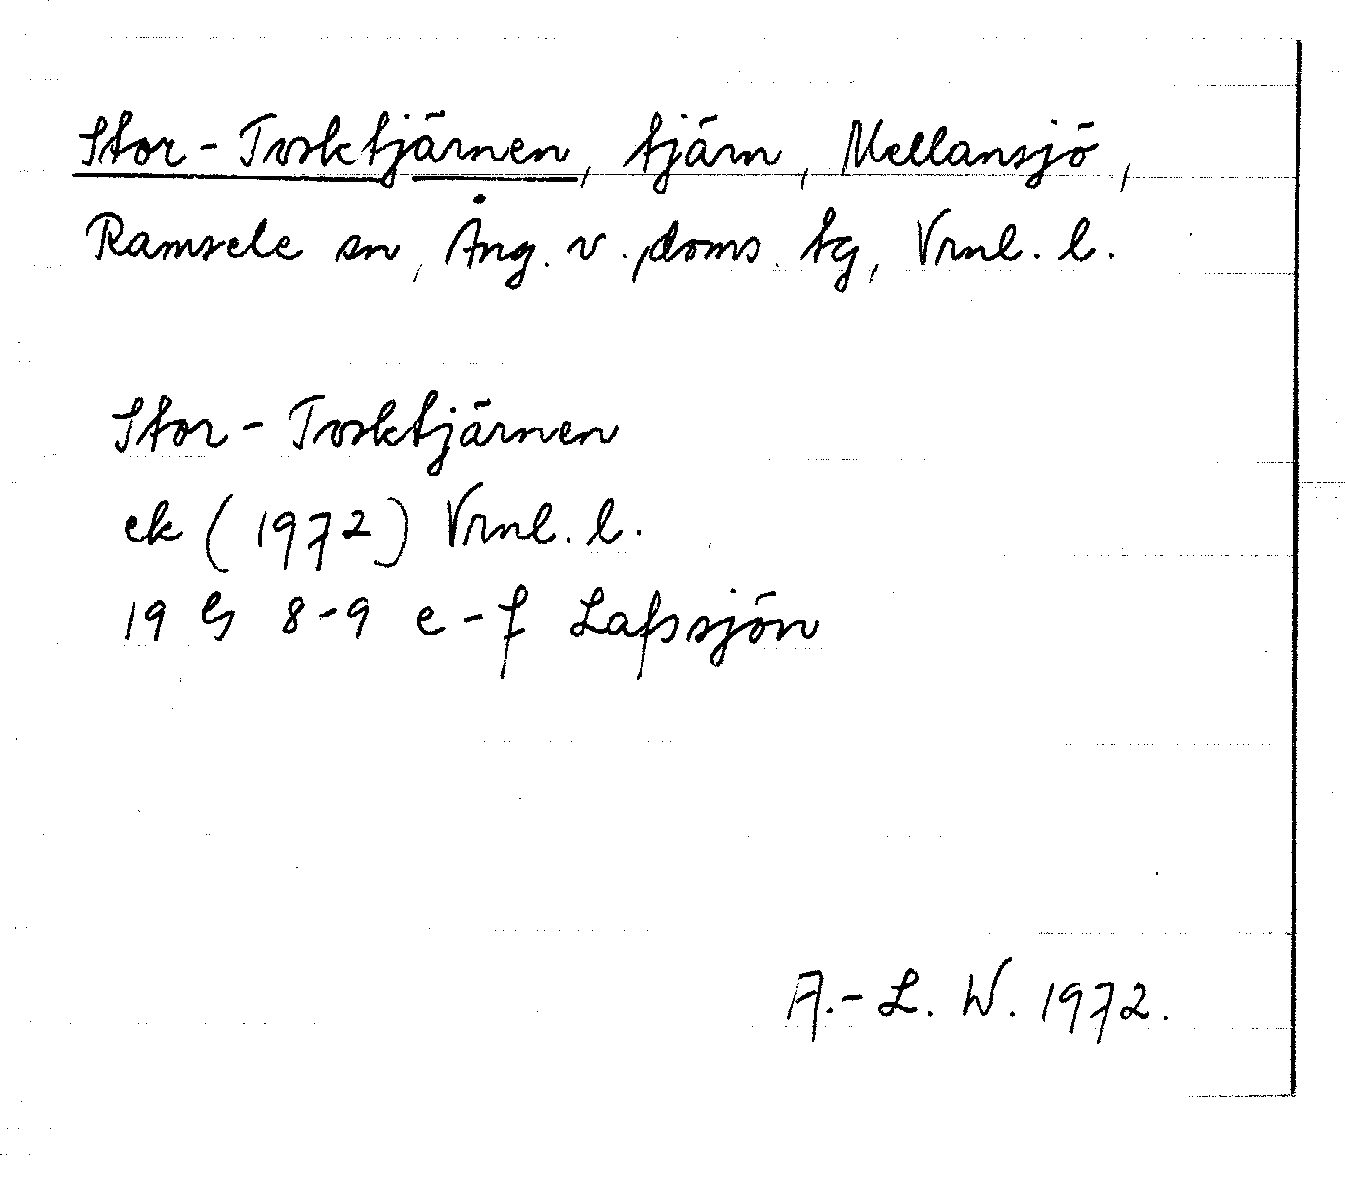 Stor-Tosktjärnen, tjärn, Mellansjö,
Ramsele sn, Ång. v. doms. tg, Vrnl. l.
Stor-Tosktjärnen
ek (1972) Vrnl. l.
19 G 8-9 e-f Lafssjön
A.-L. W. 1972.